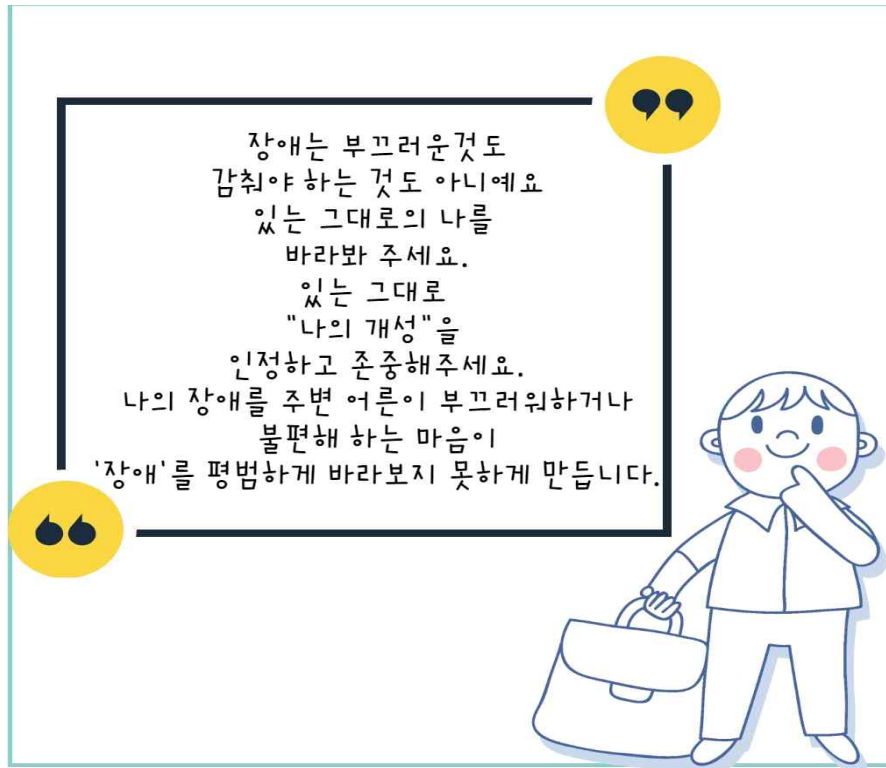 장애는 부끄러운것도
감춰야 하는 것도 아니예요
있는 그대로의 나를
바라봐 주세요.
있는 그대로
"나의 개성"을
인정하고 존중해주세요.
나의 장애를 주변 어른이 부끄러워하거나
불편해 하는 마음이
'장애'를 평범하게 바라보지 못하게 만듭니다.